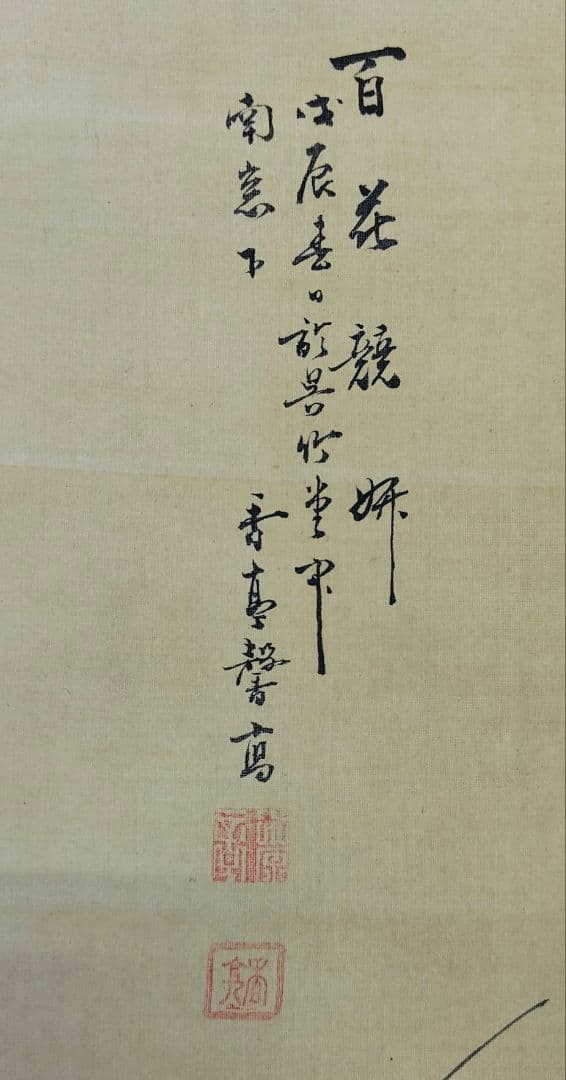 百花競妍
戊辰春日於吳竹堂中
南窓下
香亭馨寫